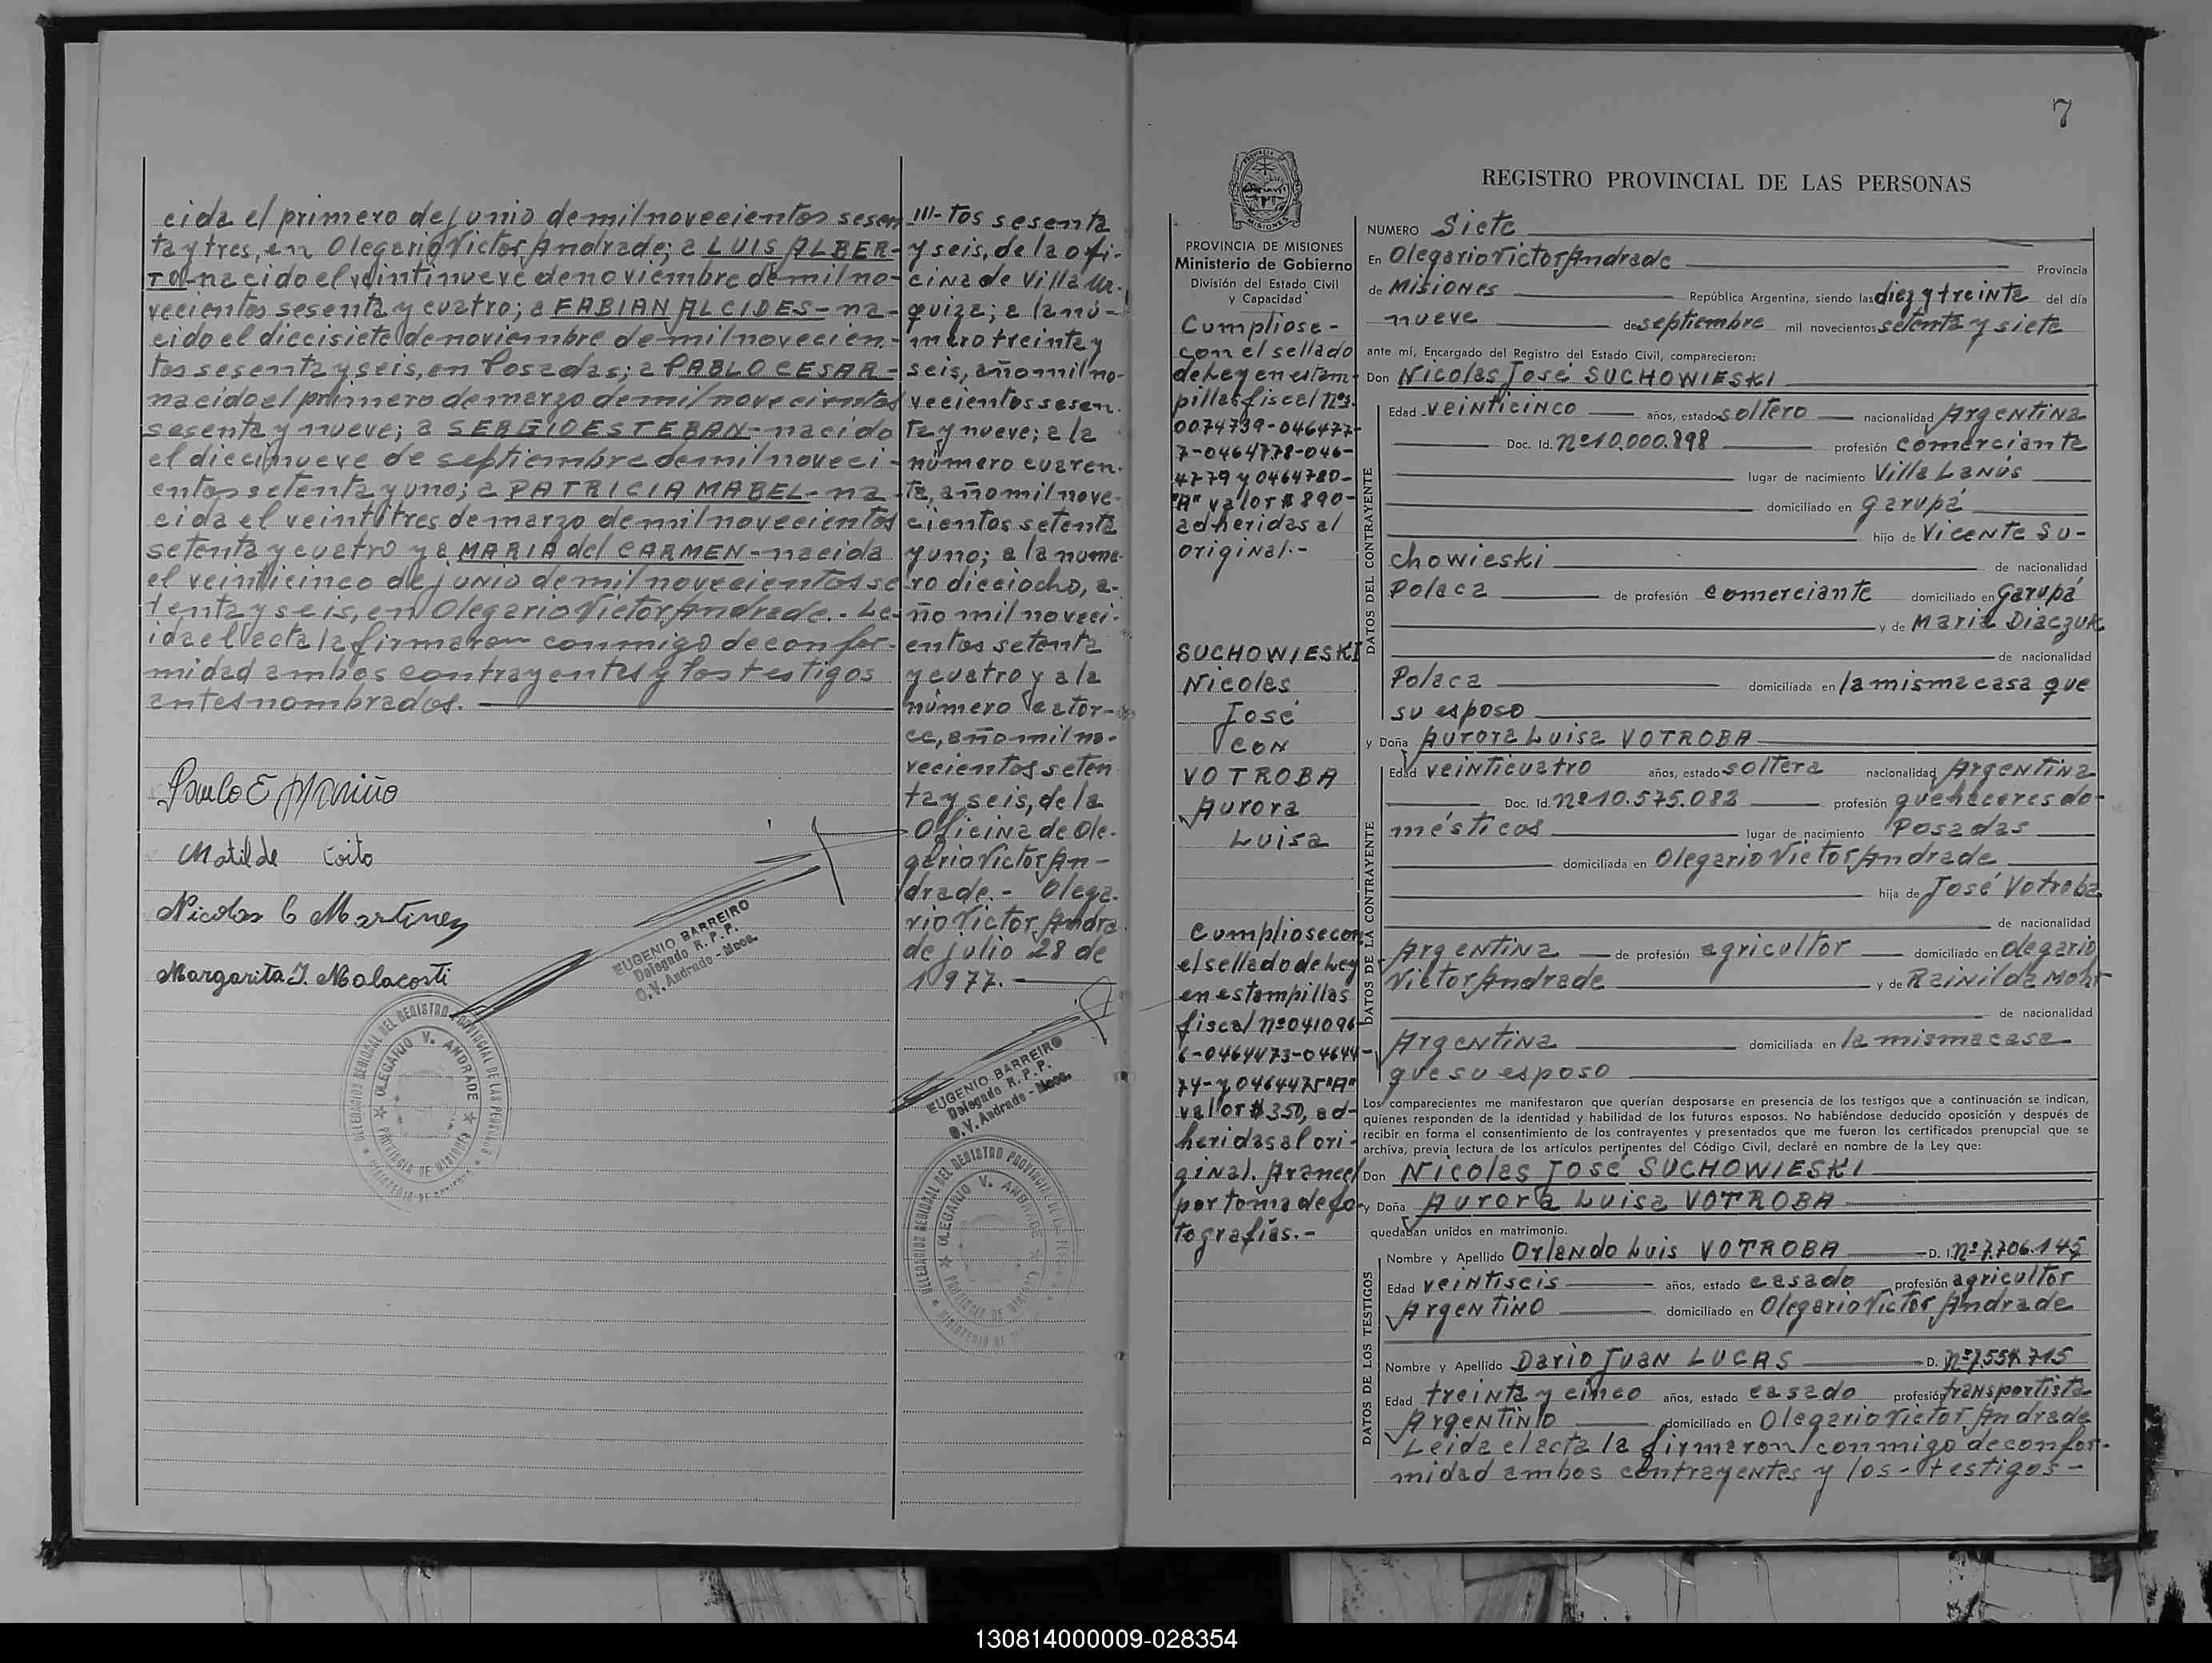 cida el primero de junio de mil novecientos sesen
ta y tres, en Olegario Victor Andrade; a LUIS ALBER-
TO- nacido el veintinueve de noviembre de mil no-
vecientos sesenta y cuatro; a FABIAN ALCIDES- na-
cido el diecisiete de noviembre de mil novecien-
tos sesenta y seis, en Posadas; a PABLO CESAR-
nacido el primero de marzo de mil novecientos
sesenta y nueve; a SERGIO ESTEBAN- nacido
el diecinueve de septiembre de mil noveci-
entos setenta y uno; a PATRICIA MABEL- na-
cida el veintitres de marzo de mil novecientos
setenta y cuatro y a MARIA del CARMEN- nacida
el veinticinco de junio de mil novecientos se
tenta y seis, en Olegario Victor Andrade.- Le-
ida el acta la firmaron conmigo de confor-
midad ambos contrayentes y los testigos
antes nombrados.
Matilde Coito
Nicolas C Martinez
Margarita J. Malacosti
EUGENIO BARREIRO
Delegado R. P. P.
O. V. Andrade - Mnes.
DELEGACION REGIONAL DEL REGISTRO PROVINCIAL DE LAS PERSONAS
OLEGARIO V. ANDRADE
PROVINCIA DE MISIONES
MINISTERIO DE GOBIERNO
III- tos sesenta
y seis, de la ofi-
cina de Villa Ur-
quiza; a la nú-
mero treinta y
seis, año mil no-
vecientos sesen-
ta y nueve; a la
número cuaren-
ta, año mil nove-
cientos setenta
y uno; a la núme-
ro dieciocho, a-
ño mil noveci-
entos setenta
y cuatro y a la
número cator-
ce, año mil no-
vecientos seten
ta y seis, de la
Oficina de Ole-
gario Victor An-
drade.- Olega-
rio Victor Andra
de julio 28 de
1977.-
EUGENIO BARREIRO
Delegado R. P. P.
O. V. Andrade - Mnes.
DELEGACION REGIONAL DEL REGISTRO PROVINCIAL DE LAS PERSONAS
OLEGARIO V. ANDRADE
PROVINCIA DE MISIONES
MINISTERIO DE
7
PROVINCIA DE MISIONES
Ministerio de Gobierno
División del Estado Civil
y Capacidad
Cumpliose-
con el sellado
de Ley en estam-
pillas fiscal Nos.
0074739-046477-
7-0464778-046-
4779 y 0464780-
"A" valor $ 890-
adheridas al
original.-
SUCHOWIESKI
Nicolas
José
CON
VOTROBA
Aurora
Luisa
Cumpliose con
el sellado de Ley
en estampillas
fiscal Nº 041096-
6-0464473-04644-
74- y 0464475 "A"
valor $ 350, ad-
heridas al ori-
ginal. Arancel
por toma de fo-
tografías.-
REGISTRO PROVINCIAL DE LAS PERSONAS
NUMERO Siete
En Olegario Victor Andrade Provincia
de Misiones República Argentina, siendo las diez y treinta del día
nueve de septiembre mil novecientos setenta y siete
ante mí, Encargado del Registro del Estado Civil, comparecieron:
Don Nicolas José SUCHOWIESKI
DATOS DEL CONTRAYENTE
Edad veinticinco años, estado soltero nacionalidad Argentina
Doc. Id. Nº 10.000.898 profesión comerciante
lugar de nacimiento Villa Lanús
domiciliado en Garupá
hijo de Vicente Su-
chowieski de nacionalidad
Polaca de profesión comerciante domiciliado en Garupá
y de Maria Diaczuk
de nacionalidad
Polaca domiciliada en la misma casa que
su esposo
y Doña Aurora Luisa VOTROBA
DATOS DE LA CONTRAYENTE
Edad veinticuatro años, estado soltera nacionalidad Argentina
Doc. Id. Nº 10.575.082 profesión quehaceres do-
mésticos lugar de nacimiento Posadas
domiciliada en Olegario Victor Andrade
hija de José Votroba
de nacionalidad
Argentina de profesión agricultor domiciliado en Olegario
Victor Andrade y de Rainilda
de nacionalidad
Argentina domiciliada en la misma casa
que su esposo
Los comparecientes me manifestaron que querían desposarse en presencia de los testigos que a continuación se indican,
quienes responden de la identidad y habilidad de los futuros esposos. No habiéndose deducido oposición y después de
recibir en forma el consentimiento de los contrayentes y presentados que me fueron los certificados prenupcial que se
archiva, previa lectura de los artículos pertinentes del Código Civil, declaré en nombre de la Ley que:
Don Nicolas José SUCHOWIESKI
y Doña Aurora Luisa VOTROBA
quedaban unidos en matrimonio.
DATOS DE LOS TESTIGOS
Nombre y Apellido Orlando Luis VOTROBA D. I. Nº 7.706.145
Edad veintiseis años, estado casado profesión agricultor
Argentino domiciliado en Olegario Victor Andrade
Nombre y Apellido Dario Juan LUCAS D.
Edad treinta y cinco años, estado casado profesión transportista
Argentino domiciliado en Olegario Victor Andrade
Leida el acta la firmaron conmigo de confor-
midad ambos contrayentes y los-testigos-
130814000009-028354